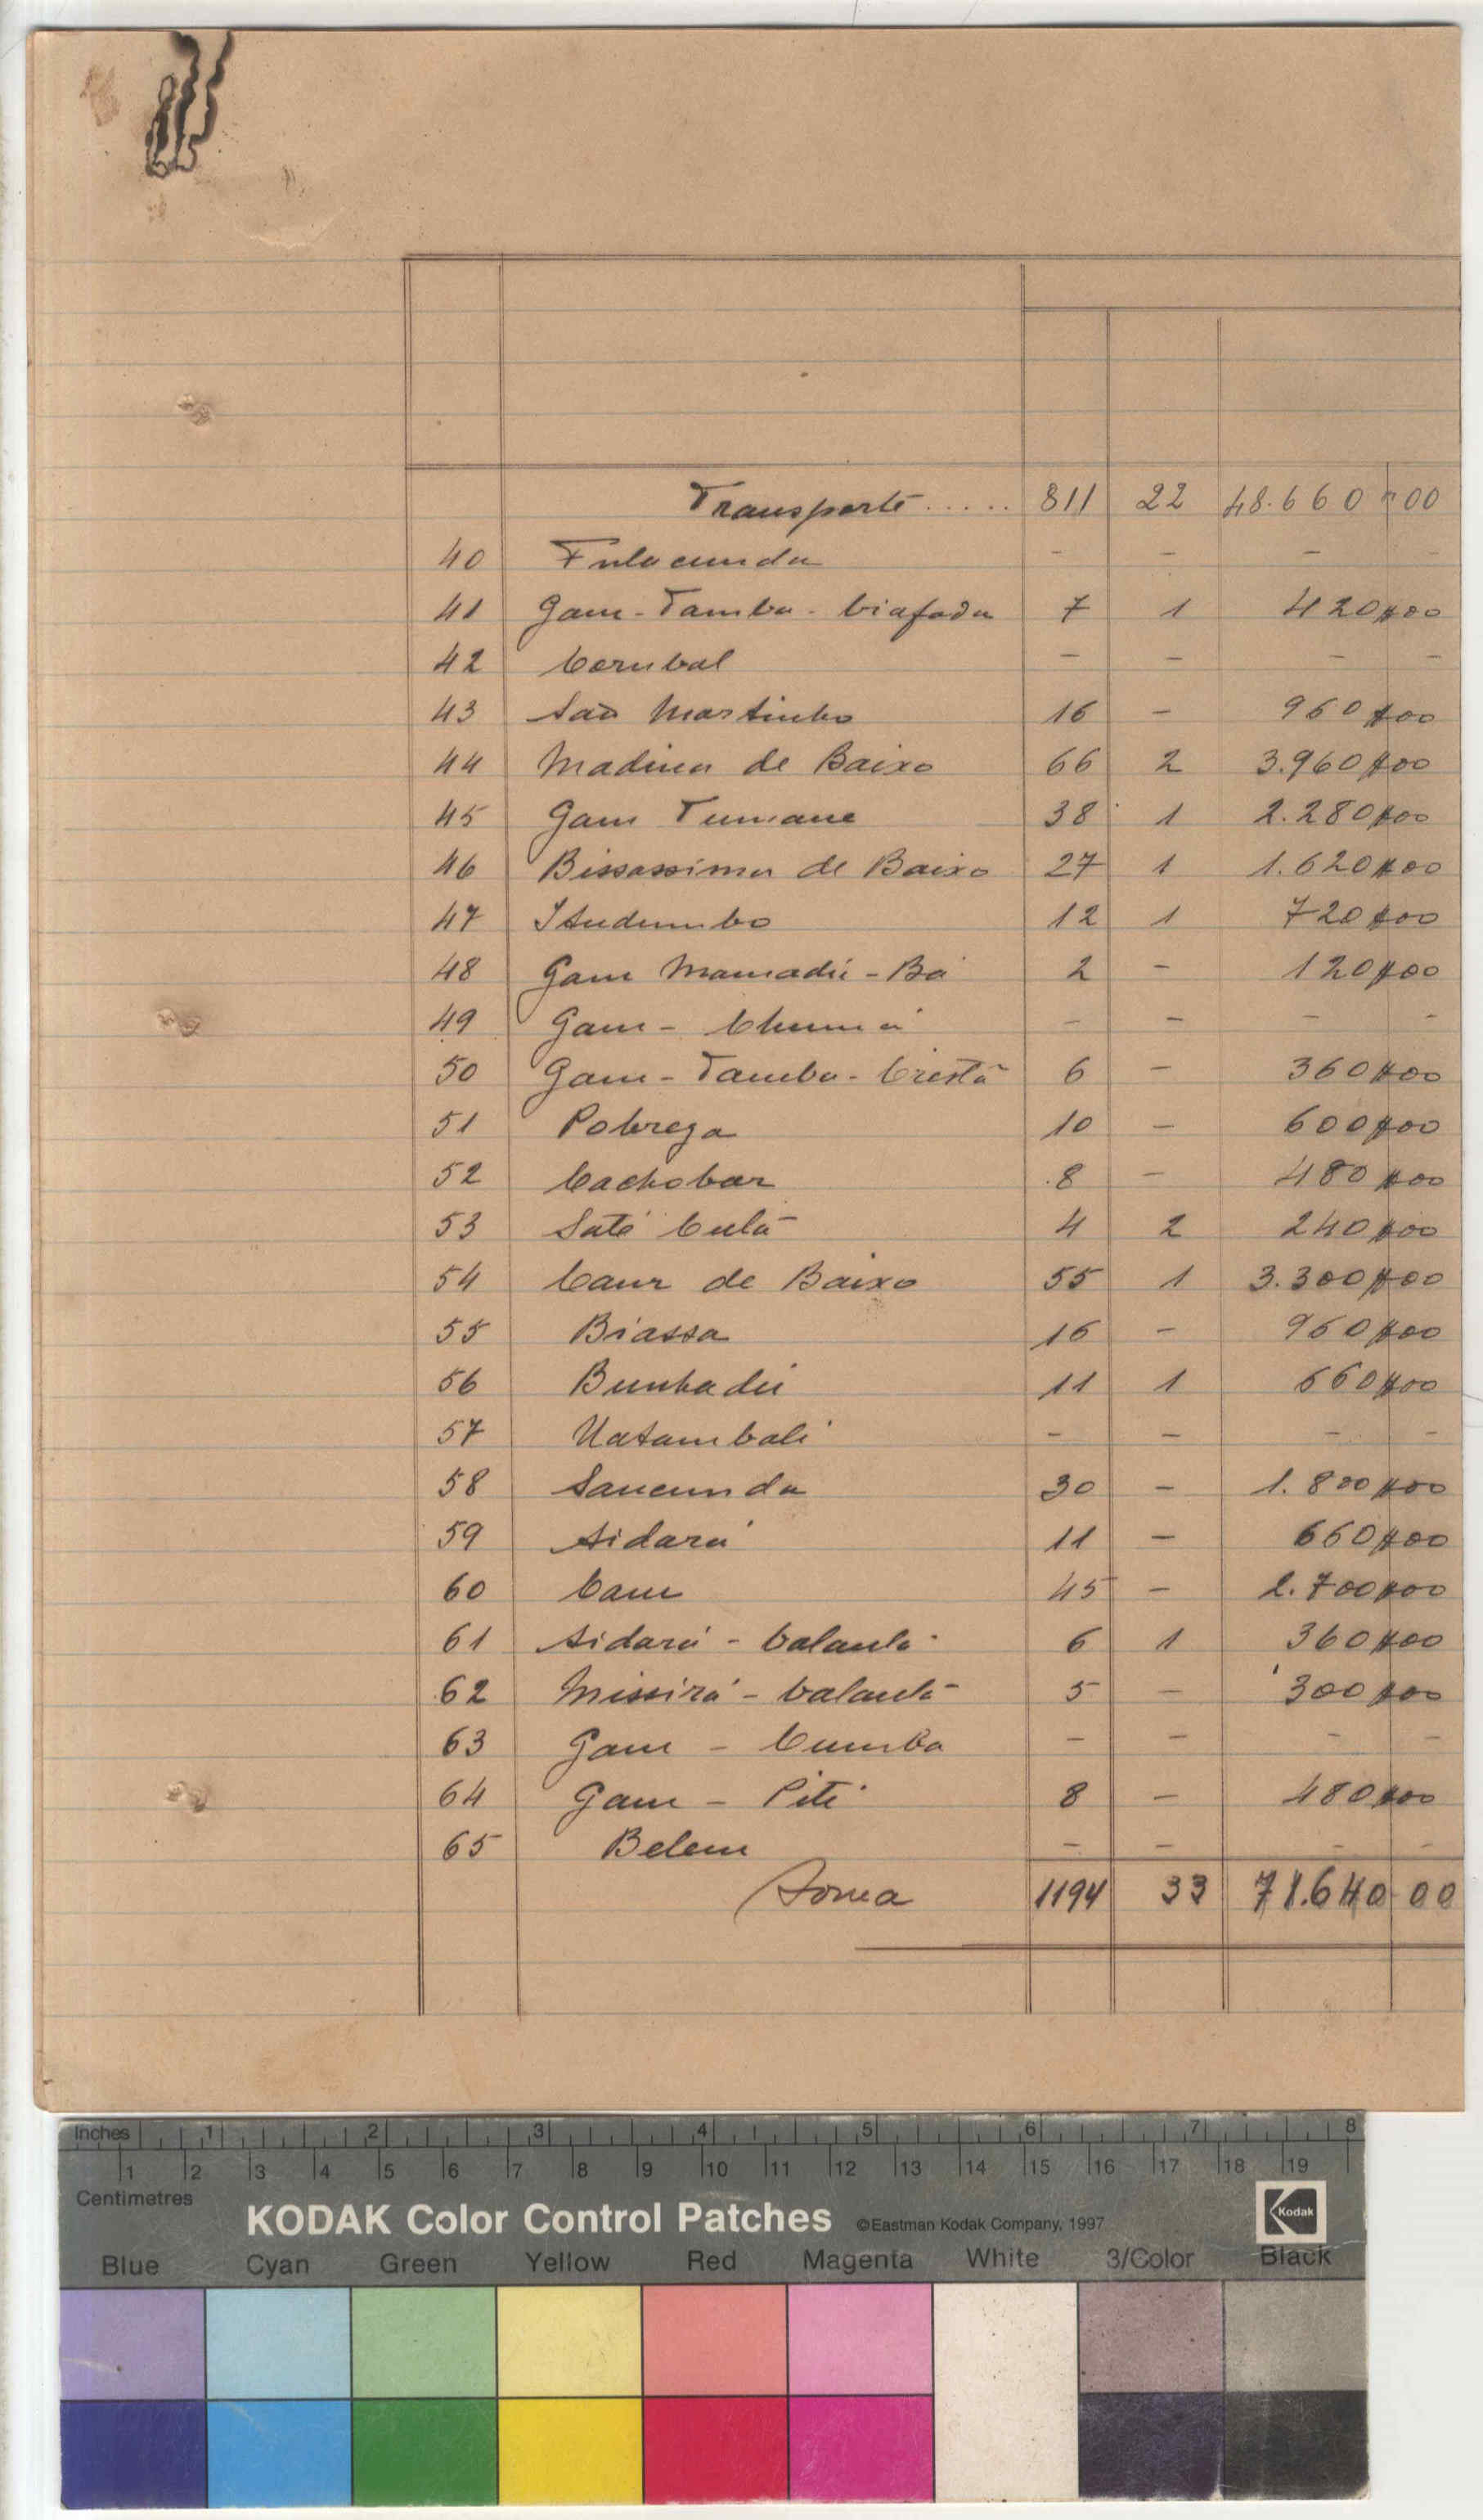 Transporte ..... 811 22 48.660$00
40 Fulacunda - - - -
41 Gam-Tamba-biafada 7 1 420$00
42 Corubal - - - -
43 São Martinho 16 - 960$00
44 Madina de Baixo 66 2 3.960$00
45 Gam Tumane 38 1 2.280$00
46 Bissassima de Baixo 27 1 1.620$00
47 Studumbo 12 1 720$00
48 Gam Mamadú-Bá 2 - 120$00
49 Gam-Chumá - - - -
50 Gam-Tamba-Cristã 6 - 360$00
51 Pobreza 10 - 600$00
52 Cachobar 8 - 480$00
53 Saté Culã 4 2 240$00
54 Caur de Baixo 55 1 3.300$00
55 Biassa 16 - 960$00
56 Bunhadú 11 1 660$00
57 Uatambali - - - -
58 Sancunda 30 - 1.800$00
59 Aidará 11 - 660$00
60 Cam 45 - 2.700$00
61 Aidará - balanta 6 1 360$00
62 Missirá - balanta 5 - 300$00
63 Gam - Cumba - - - -
64 Gam - Piti 8 - 480$00
65 Belem - - - -
Soma 1194 33 71.640 00
Inches 1 2 3 4 5 6 7 8
1 2 3 4 5 6 7 8 9 10 11 12 13 14 15 16 17 18 19
Centimetres
KODAK Color Control Patches ©Eastman Kodak Company, 1997 Kodak
Blue Cyan Green Yellow Red Magenta White 3/Color Black